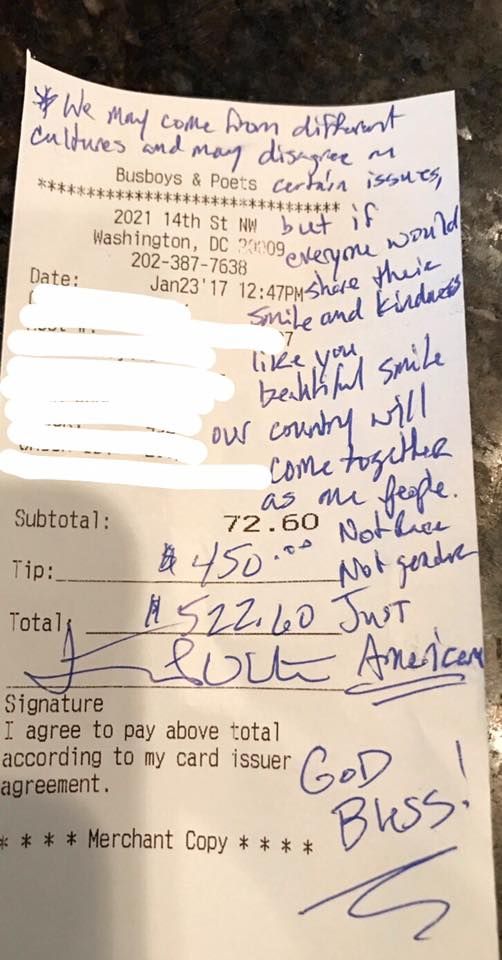 * We may come from different
cultures and may disagree on
Busboys & Poets certain issues,
***********************************
2021 14th St NW but if
Washington, DC 20009 everyone would
202-387-7638 share their
Date: Jan23'17 12:47PM
smile and kindness
7
like you
beautiful smile
our country will
come together
as one people.
Subtotal: 72.60 Not Race
Tip: $ 450.00 Not gender
Total: $ 522.60 Just
American
Signature
I agree to pay above total
according to my card issuer
agreement.
GOD
Bless!
* * * * Merchant Copy * * * *